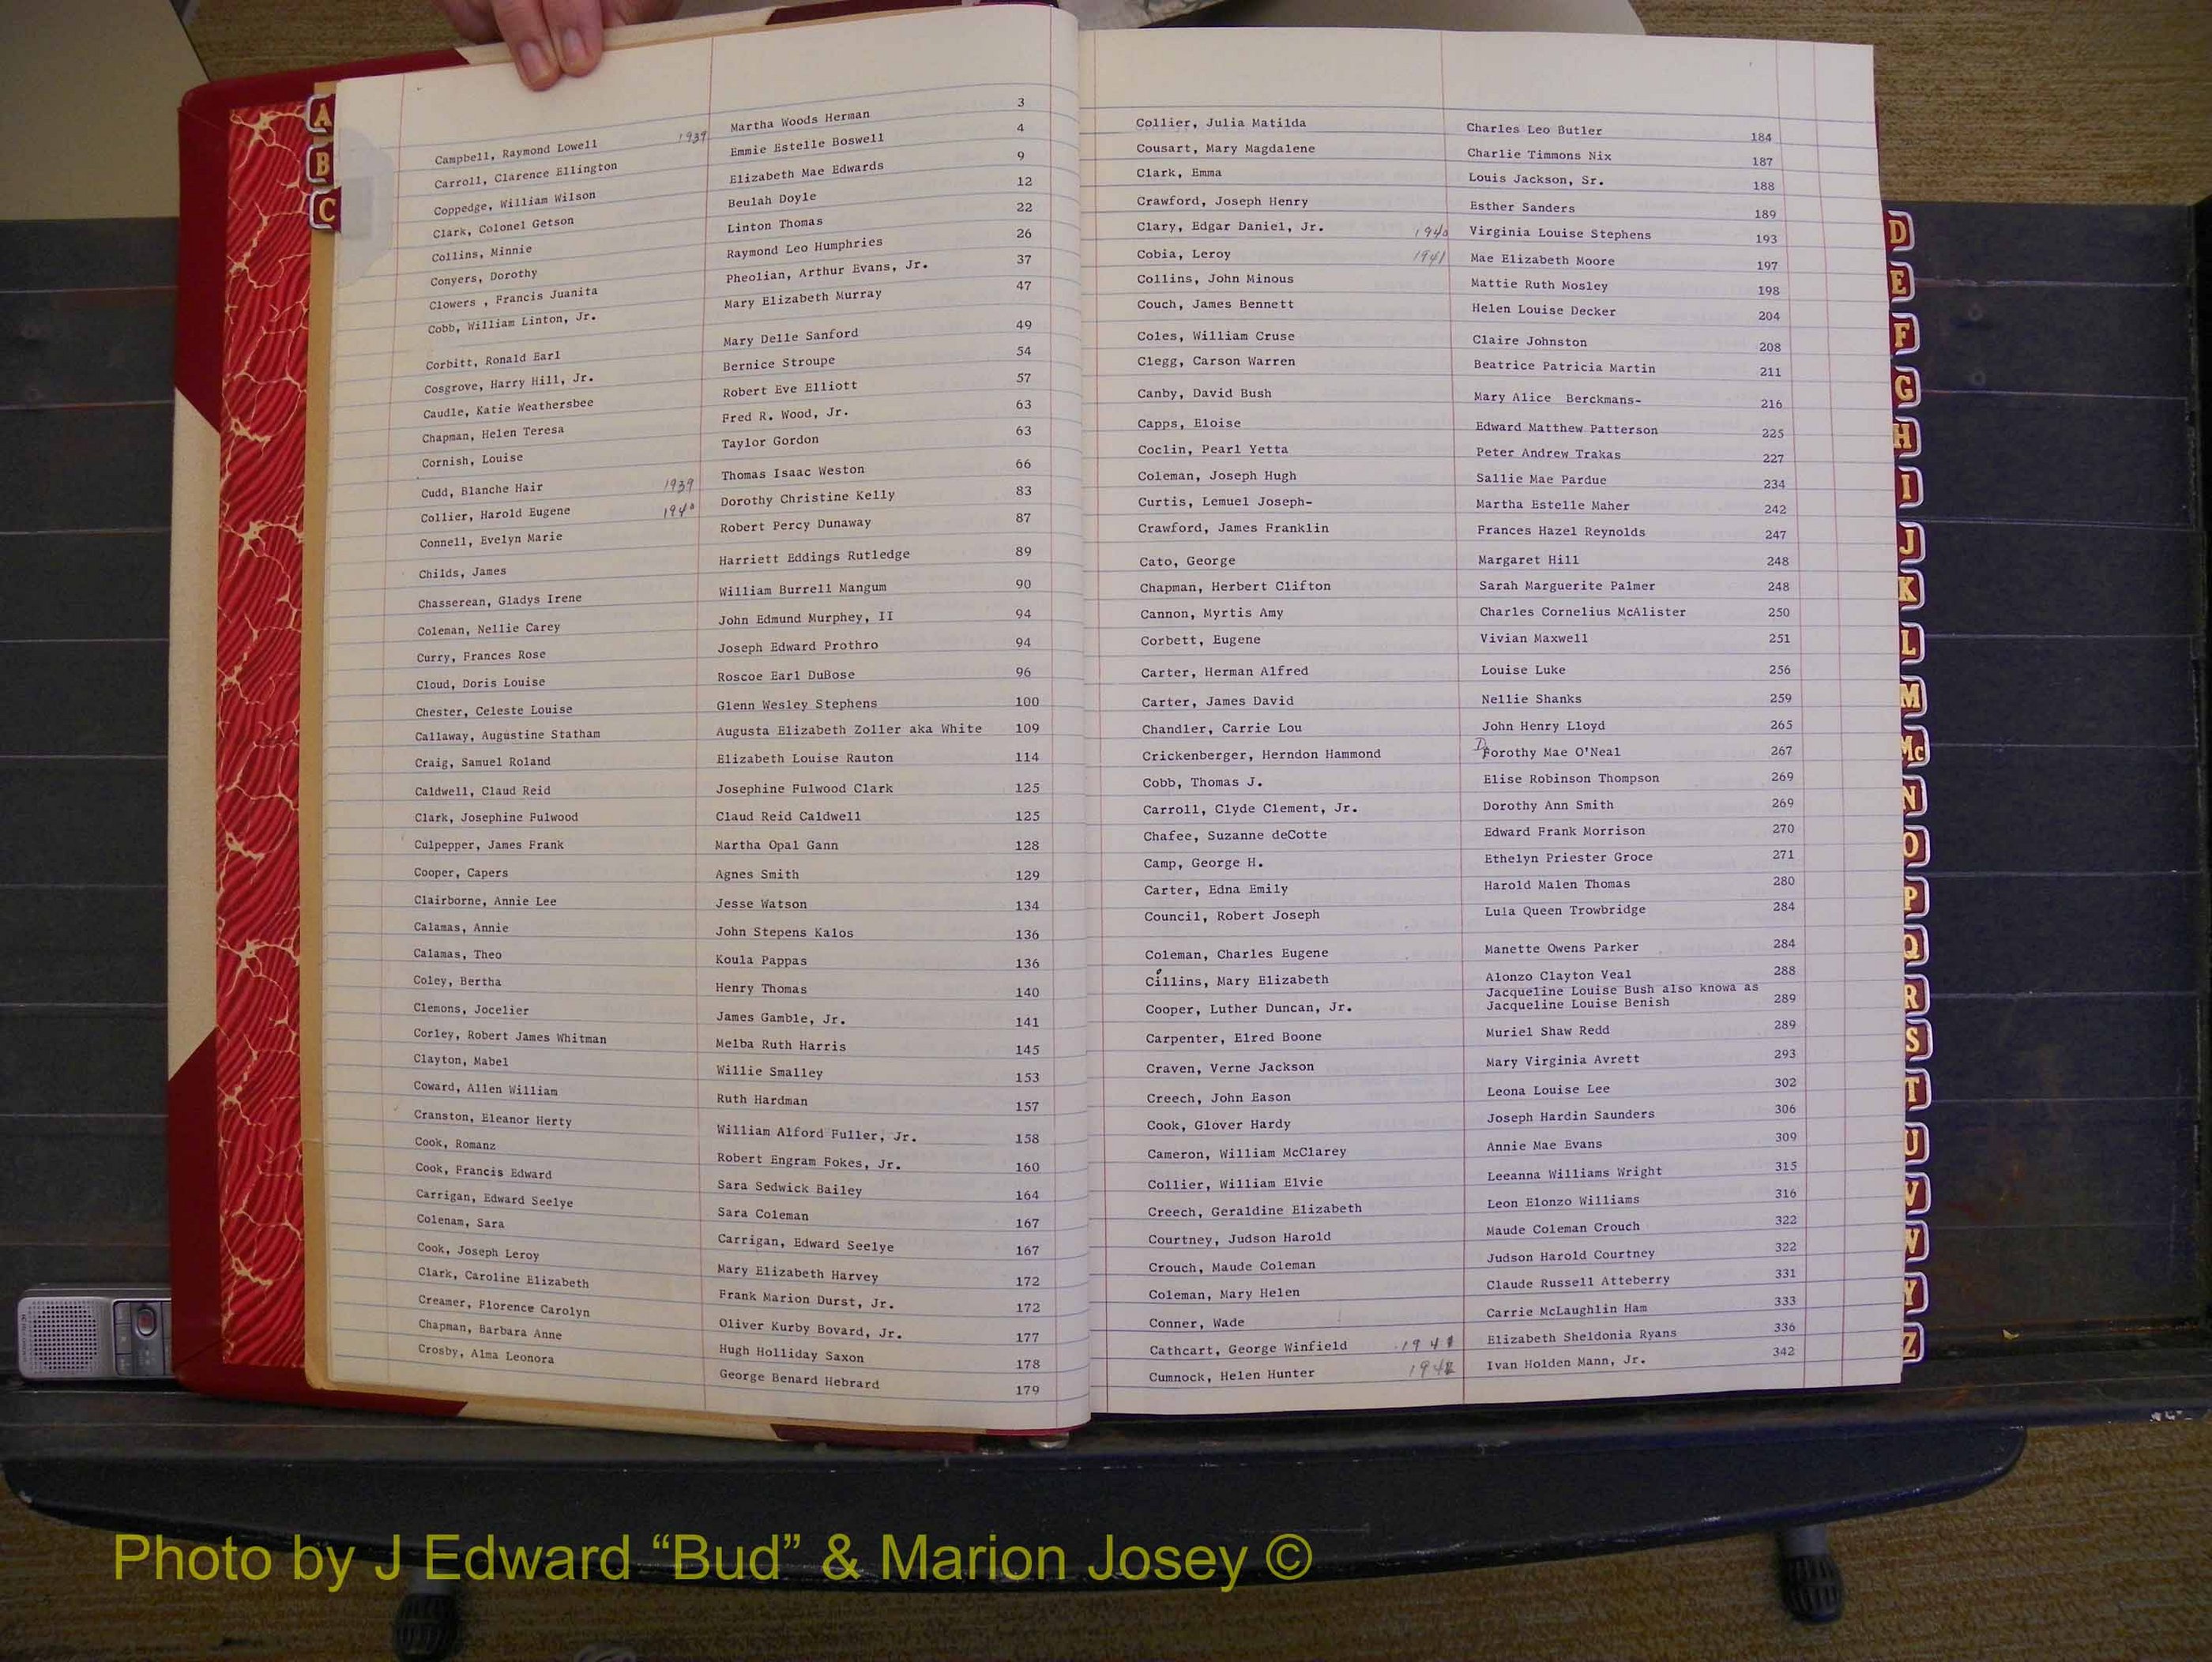 A
B
C
Campbell, Raymond Lowell 1939 Martha Woods Herman 3
Carroll, Clarence Ellington Emmie Estelle Boswell 4
Coppedge, William Wilson Elizabeth Mae Edwards 9
Clark, Colonel Getson Beulah Doyle 12
Collins, Minnie Linton Thomas 22
Conyers, Dorothy Raymond Leo Humphries 26
Clowers , Francis Juanita Pheolian, Arthur Evans, Jr. 37
Cobb, William Linton, Jr. Mary Elizabeth Murray 47
Corbitt, Ronald Earl Mary Delle Sanford 49
Cosgrove, Harry Hill, Jr. Bernice Stroupe 54
Caudle, Katie Weathersbee Robert Eve Elliott 57
Chapman, Helen Teresa Fred R. Wood, Jr. 63
Cornish, Louise Taylor Gordon 63
Cudd, Blanche Hair 1939 Thomas Isaac Weston 66
Collier, Harold Eugene 1940 Dorothy Christine Kelly 83
Connell, Evelyn Marie Robert Percy Dunaway 87
Childs, James Harriett Eddings Rutledge 89
Chasserean, Gladys Irene William Burrell Mangum 90
Coleman, Nellie Carey John Edmund Murphey, II 94
Curry, Frances Rose Joseph Edward Prothro 94
Cloud, Doris Louise Roscoe Earl DuBose 96
Chester, Celeste Louise Glenn Wesley Stephens 100
Callaway, Augustine Statham Augusta Elizabeth Zoller aka White 109
Craig, Samuel Roland Elizabeth Louise Rauton 114
Caldwell, Claud Reid Josephine Fulwood Clark 125
Clark, Josephine Fulwood Claud Reid Caldwell 125
Culpepper, James Frank Martha Opal Gann 128
Cooper, Capers Agnes Smith 129
Clairborne, Annie Lee Jesse Watson 134
Calamas, Annie John Stepens Kalos 136
Calamas, Theo Koula Pappas 136
Coley, Bertha Henry Thomas 140
Clemons, Jocelier James Gamble, Jr. 141
Corley, Robert James Whitman Melba Ruth Harris 145
Clayton, Mabel Willie Smalley 153
Coward, Allen William Ruth Hardman 157
Cranston, Eleanor Herty William Alford Fuller, Jr. 158
Cook, Romanz Robert Engram Fokes, Jr. 160
Cook, Francis Edward Sara Sedwick Bailey 164
Carrigan, Edward Seelye Sara Coleman 167
Colenam, Sara Carrigan, Edward Seelye 167
Cook, Joseph Leroy Mary Elizabeth Harvey 172
Clark, Caroline Elizabeth Frank Marion Durst, Jr. 172
Creamer, Florence Carolyn Oliver Kurby Bovard, Jr. 177
Chapman, Barbara Anne Hugh Holliday Saxon 178
Crosby, Alma Leonora George Benard Hebrard 179
Collier, Julia Matilda Charles Leo Butler 184
Cousart, Mary Magdalene Charlie Timmons Nix 187
Clark, Emma Louis Jackson, Sr. 188
Crawford, Joseph Henry Esther Sanders 189
Clary, Edgar Daniel, Jr. 1940 Virginia Louise Stephens 193
Cobia, Leroy 1941 Mae Elizabeth Moore 197
Collins, John Minous Mattie Ruth Mosley 198
Couch, James Bennett Helen Louise Decker 204
Coles, William Cruse Claire Johnston 208
Clegg, Carson Warren Beatrice Patricia Martin 211
Canby, David Bush Mary Alice Berckmans- 216
Capps, Eloise Edward Matthew Patterson 225
Coclin, Pearl Yetta Peter Andrew Trakas 227
Coleman, Joseph Hugh Sallie Mae Pardue 234
Curtis, Lemuel Joseph- Martha Estelle Maher 242
Crawford, James Franklin Frances Hazel Reynolds 247
Cato, George Margaret Hill 248
Chapman, Herbert Clifton Sarah Marguerite Palmer 248
Cannon, Myrtis Amy Charles Cornelius McAlister 250
Corbett, Eugene Vivian Maxwell 251
Carter, Herman Alfred Louise Luke 256
Carter, James David Nellie Shanks 259
Chandler, Carrie Lou John Henry Lloyd 265
Crickenberger, Herndon Hammond Dorothy Mae O'Neal 267
Cobb, Thomas J. Elise Robinson Thompson 269
Carroll, Clyde Clement, Jr. Dorothy Ann Smith 269
Chafee, Suzanne deCotte Edward Frank Morrison 270
Camp, George H. Ethelyn Priester Groce 271
Carter, Edna Emily Harold Malen Thomas 280
Council, Robert Joseph Lula Queen Trowbridge 284
Coleman, Charles Eugene Manette Owens Parker 284
Cillins, Mary Elizabeth Alonzo Clayton Veal 288
Cooper, Luther Duncan, Jr. Jacqueline Louise Bush also knowa as
Jacqueline Louise Benish 289
Carpenter, Elred Boone Muriel Shaw Redd 289
Craven, Verne Jackson Mary Virginia Avrett 293
Creech, John Eason Leona Louise Lee 302
Cook, Glover Hardy Joseph Hardin Saunders 306
Cameron, William McClarey Annie Mae Evans 309
Collier, William Elvie Leeanna Williams Wright 315
Creech, Geraldine Elizabeth Leon Elonzo Williams 316
Courtney, Judson Harold Maude Coleman Crouch 322
Crouch, Maude Coleman Judson Harold Courtney 322
Coleman, Mary Helen Claude Russell Atteberry 331
Conner, Wade Carrie McLaughlin Ham 333
Cathcart, George Winfield 1941 Elizabeth Sheldonia Ryans 336
Cumnock, Helen Hunter 1942 Ivan Holden Mann, Jr. 342
D
E
F
G
H
I
J
K
L
M
Mc
N
O
P
Q
R
S
T
U
V
W
Y
Z
Photo by J Edward “Bud” & Marion Josey ©